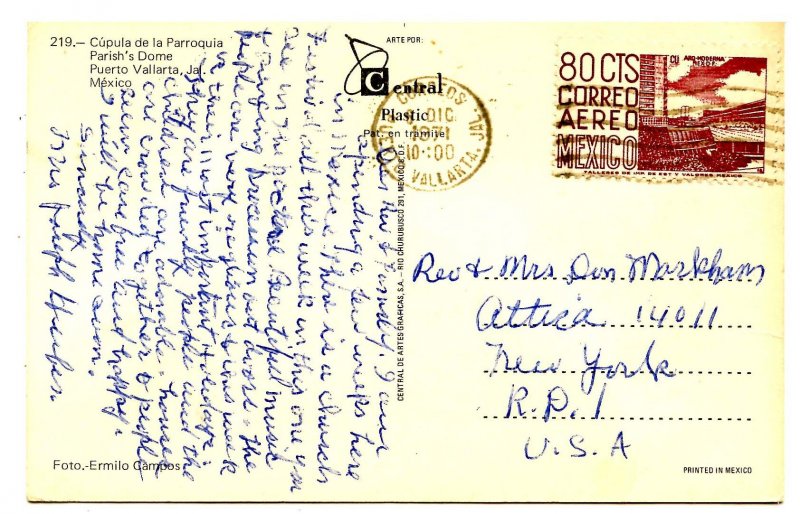 219.— Cúpula de la Parroquia
Parish's Dome
Puerto Vallarta, Jal.
México
ARTE POR:
Central
Plastic
Pat. en tramite
CORREOS
DIC
10:00
VALLARTA, JAL.
80 CTS
CORREO
AEREO
MEXICO
CU ARQ-MODERNA
MEX. D.F.
TALLERES DE IMP. DE EST. Y VALORES-MEXICO
Dear Rev & Family. I am
spending a few weeks here
in Mexico. This is a church
Festival all this week in this one you
see in the Picture Beautiful music
& singing Procession out doors - the
people are very religious & this week
is their most important holiday.
They are friendly people and the
children are adorable - houses
are crowded together & people
live care free and happy.
I will be home soon.
Sincerely
CENTRAL DE ARTES GRAFICAS, S.A. — RIO CHURUBUSCO 291, MEXICO 8, D.F.
Rev & Mrs Don Markham
Attica 14011
New York
R.D. 1
U.S.A
Foto.-Ermilo Campos
PRINTED IN MEXICO